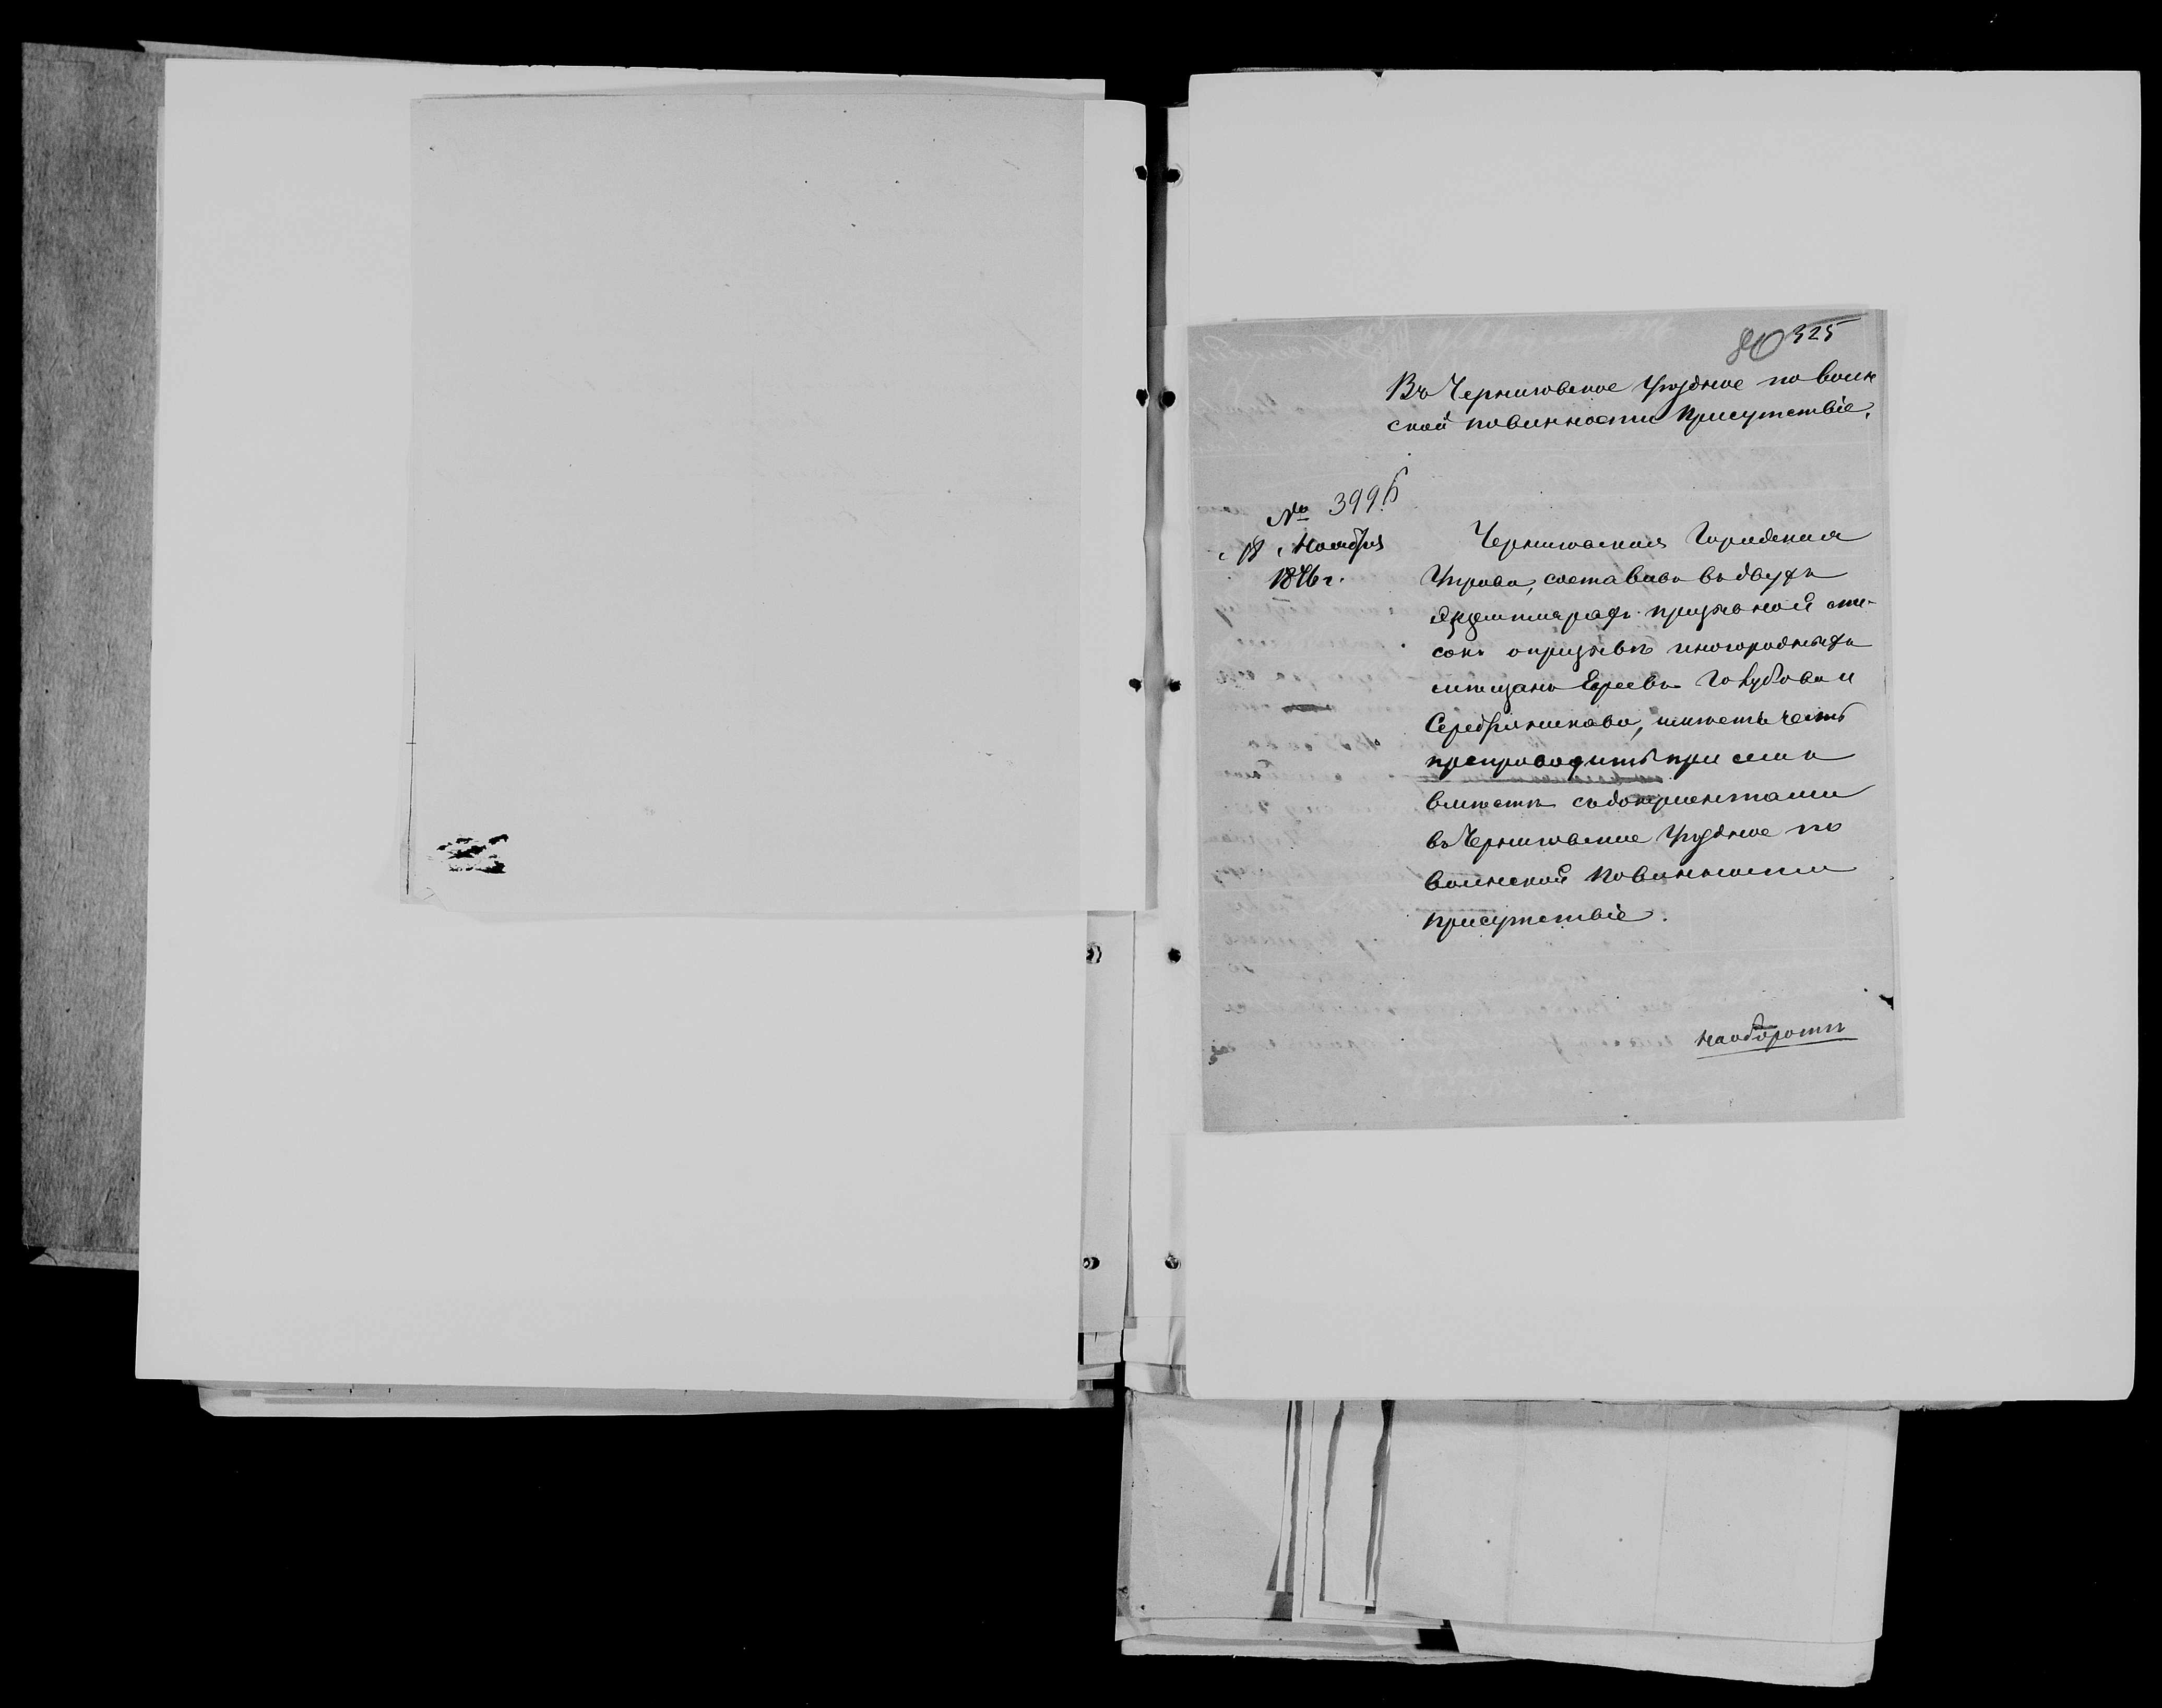 80 325
Въ Черниговское Уѣздное по воин
ской повинности Присутствіе.
№ 3996
18 Ноября
1876 г.
Черниговская Городская
Управа, составивъ въ двухъ
экземплярахъ призывной спи-
сокъ о призывѣ иногородныхъ
мѣщанъ Евреевъ Голубова и
Серебрянникова, имѣетъ честь
препроводить при семъ
вмѣстѣ съ документами
въ Черниговское Уѣздное по
воинской повинности
присутствіе.
на оборотѣ